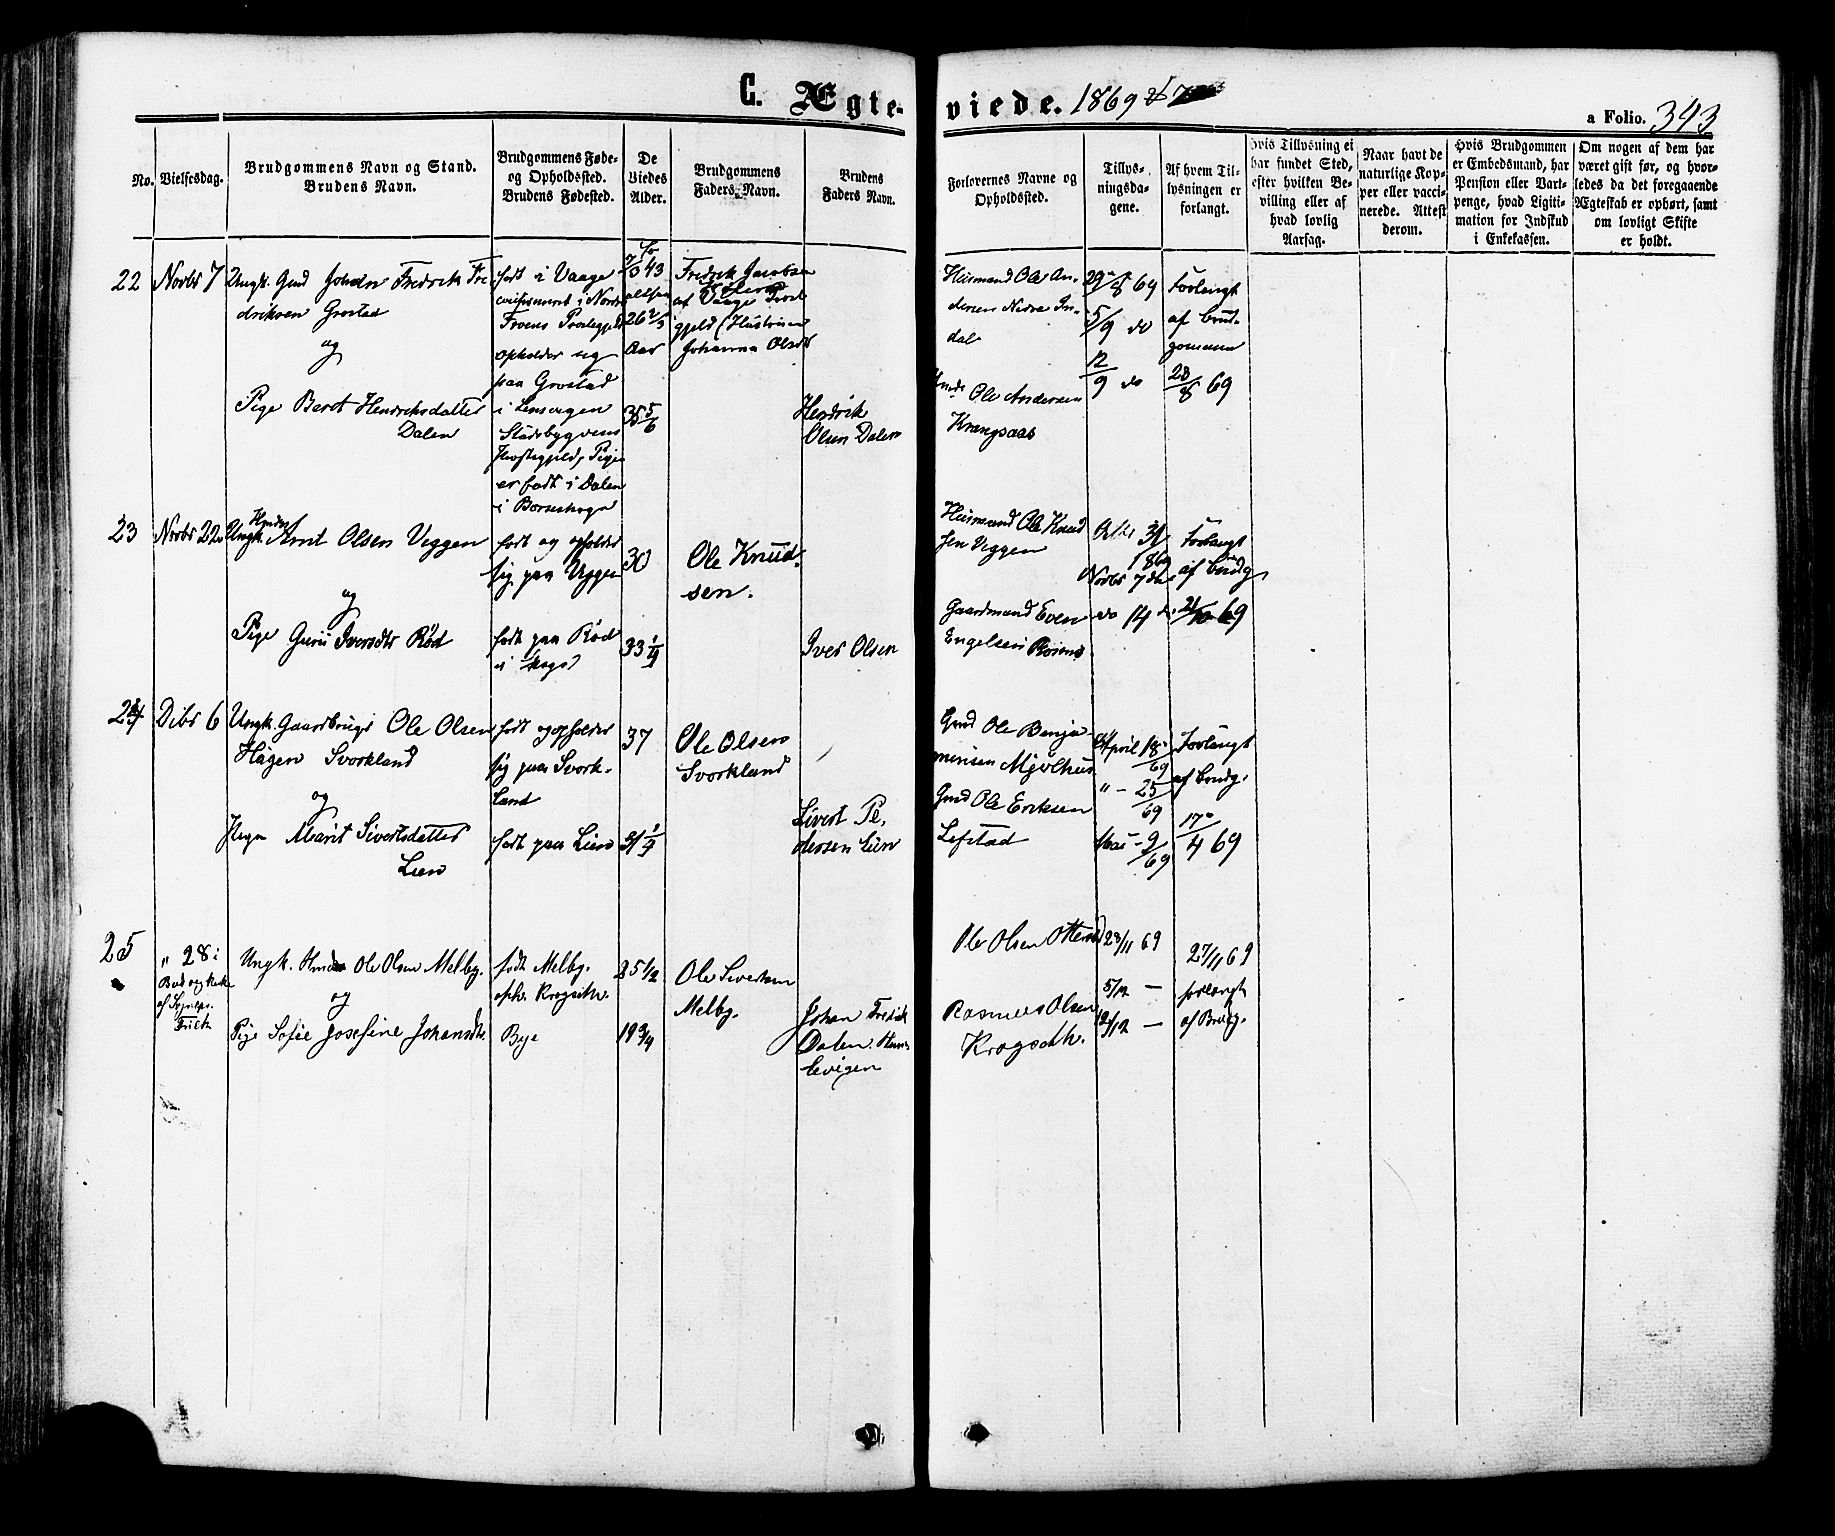 C. Ægteviede. 1869
a Folio. 343
No.
Vielsesdag.
Brudgommens Navn og Stand.
Brudens Navn.
Brudgommens Føde-
og Opholdssted.
Brudens Fødested.
De
Viedes
Alder.
Brudgommens
Faders Navn.
Brudens
Faders Navn.
Forlovernes Navne og
Opholdssted.
Tillys-
ningsda-
gene.
Af hvem Til-
lysningen er
forlangt.
Hvis Tillysning ei
har fundet Sted,
efter hvilken Be-
villing eller af
hvad lovlig
Aarsag.
Naar havt de
naturlige Kop-
per eller vacci-
nerede. Attest
derom.
Hvis Brudgommen
er Embedsmand, har
Pension eller Vart-
penge, hvad Ligiti-
mation for Indskud
i Enkekassen.
Om nogen af dem har
været gift før, og hvor-
ledes da det foregaaende
Ægteskab er ophørt, samt
om lovligt Skifte
er holdt.
22
Novbr 7
Ungk. Gmd Johan Fredrik Fre
driksen Grostad
og
Pige Beret Hendriksdatter
Dalen
født i Vaage
i Nordre
Froens Præstegjeld
opholder sig
paa Grostad
i Lensvigen
Stadsbygdens
Præstegjeld, Pigen
er født i Dalen
i Børseskogn
43
26 2/3
Aar
35 5/6
Fredrik Jacobsen
af Vaage Præst
gjeld (Hustruen
Johanna Olsdtr
Hendrik
Olsen Dalen
Husmand Ole An-
dersen Nedre In-
dal
Ole Andersen
Krangsaas
29/8 69
5/9 do
12/9 do
Forlangt
af Brud-
gommen
28/8 69
23
Novbr 22
Ungk. Arnt Olsen Veggen
og
Pige Guru Iversdtr Rød
født og opholder
sig paa Veggen
født paa Rød
i Skogn
30
33 1/4
Ole Knud-
sen.
Iver Olsen
Husmand Ole Knud
sen Veggen
Gaardmand Even
Engelsen
31/869
Novbr 7de
do 14 do
Forlangt
af Brudg
21/10 69
24
Dcbr 6
Ungk. Gaardbruger Ole Olsen
Hagen Svorkland
og
Pigen Marit Sivertsdatter
Lien
født og opholder
sig paa Svork-
land
født paa Lien
37
31 1/4
Ole Olsen
Svorkland
Sivert Pe-
dersen Lien
Gmd Ole Benja-
minsen Mjølhus
Gmd Ole Eriksen
Lefstad
April 18/69
" - 25/69
Mai - 2/69
Forlangt
af Brudg.
17/4 69
25
" 28 i
Budvig Kirke
af Sognepr.
Frich
Ungk. Ole Olsen Melby.
og
Pige Sofie Josefine Johansdtr.
født Melby.
oph. Krogseth.
Bye
25 1/2
19 3/4
Ole Sivertsen
Melby.
Johan Fredrik
Dalen.
levigen
Ole Olsen
Rasmus Olsen
Krogseth.
28/11 69
5/12 —
12/12 —
27/11 69
forlangt
af Brudg.